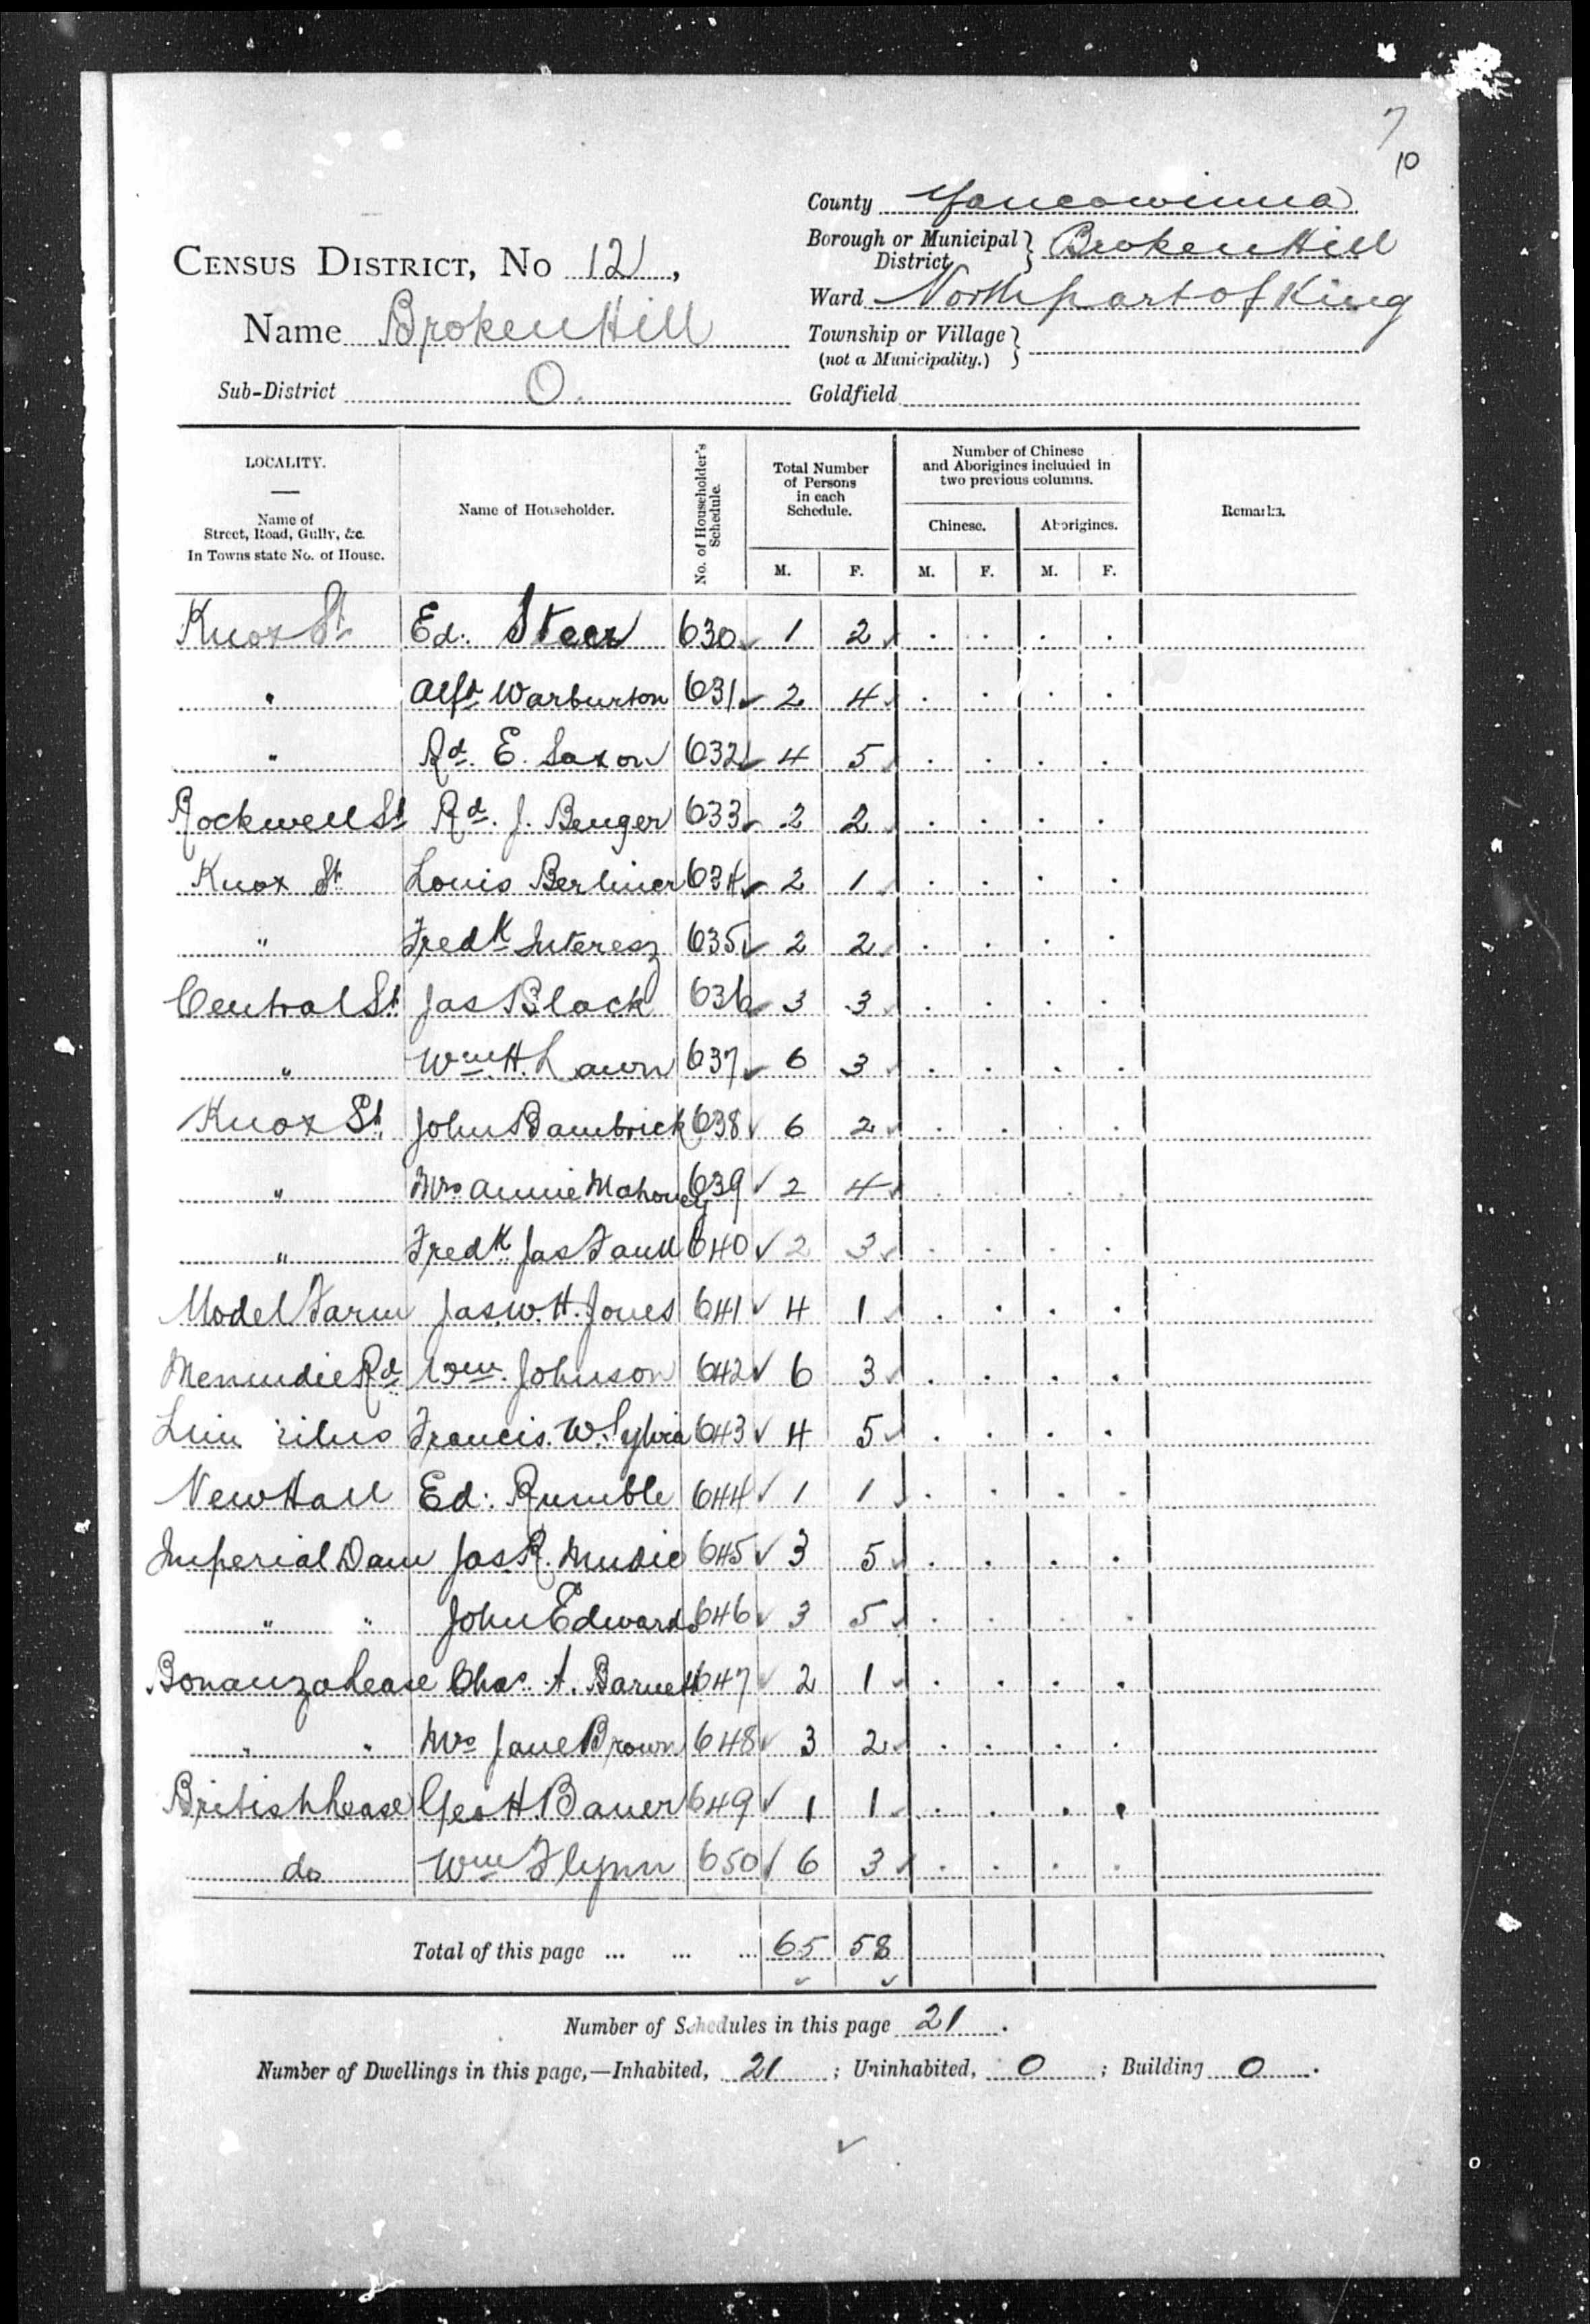 7
10
County Yancowinna
Borough or Municipal District Broken Hill
Census District, No 12,
Ward North part of King
Name Broken Hill
Township or Village (not a Municipality.)
Sub-District O.
Goldfield
LOCALITY. Name of Street, Road, Gully, &c. In Towns state No. of House.
Name of Householder.
No. of Householder's Schedule.
Total Number of Persons in each Schedule.
Number of Chinese and Aborigines included in two previous columns.
Remarks.
Chinese. Aborigines.
M. F. M. F. M. F.
Knox St Ed. Steer 630 1 2
" Alfd Warburton 631 2 4
" Rd. E. Saxon 632 4 5
Rockwell St Rd. J. Benger 633 2 2
Knox St Louis Berliner 634 2 1
" Fredk 635 2 2
Central St Jas Black 636 3 3
" Wm. H. Lawn 637 6 3
Knox St. John Bambrick 638 6 2
" Mrs Annie Mahoney 639 2 4
" Fredk Jas Faull 640 2 3
Model Farm Jas. W. H. Jones 641 4 1
Menindie Rd Wm. Johnson 642 6 3
Francis. W. Sylvia 643 4 5
New Hall Ed. Rumble 644 1 1
Imperial Dam Jas R. Mudie 645 3 5
" " John Edwards 646 3 5
Bonanza Lease Chas. A. Barnett 647 2 1
" " Mrs Jane Brown 648 3 2
British Lease Geo H Bauer 649 1 1
do Wm Flynn 650 6 3
Total of this page ... ... ... 65 58
Number of Schedules in this page 21.
Number of Dwellings in this page,—Inhabited, 21; Uninhabited, 0; Building 0.